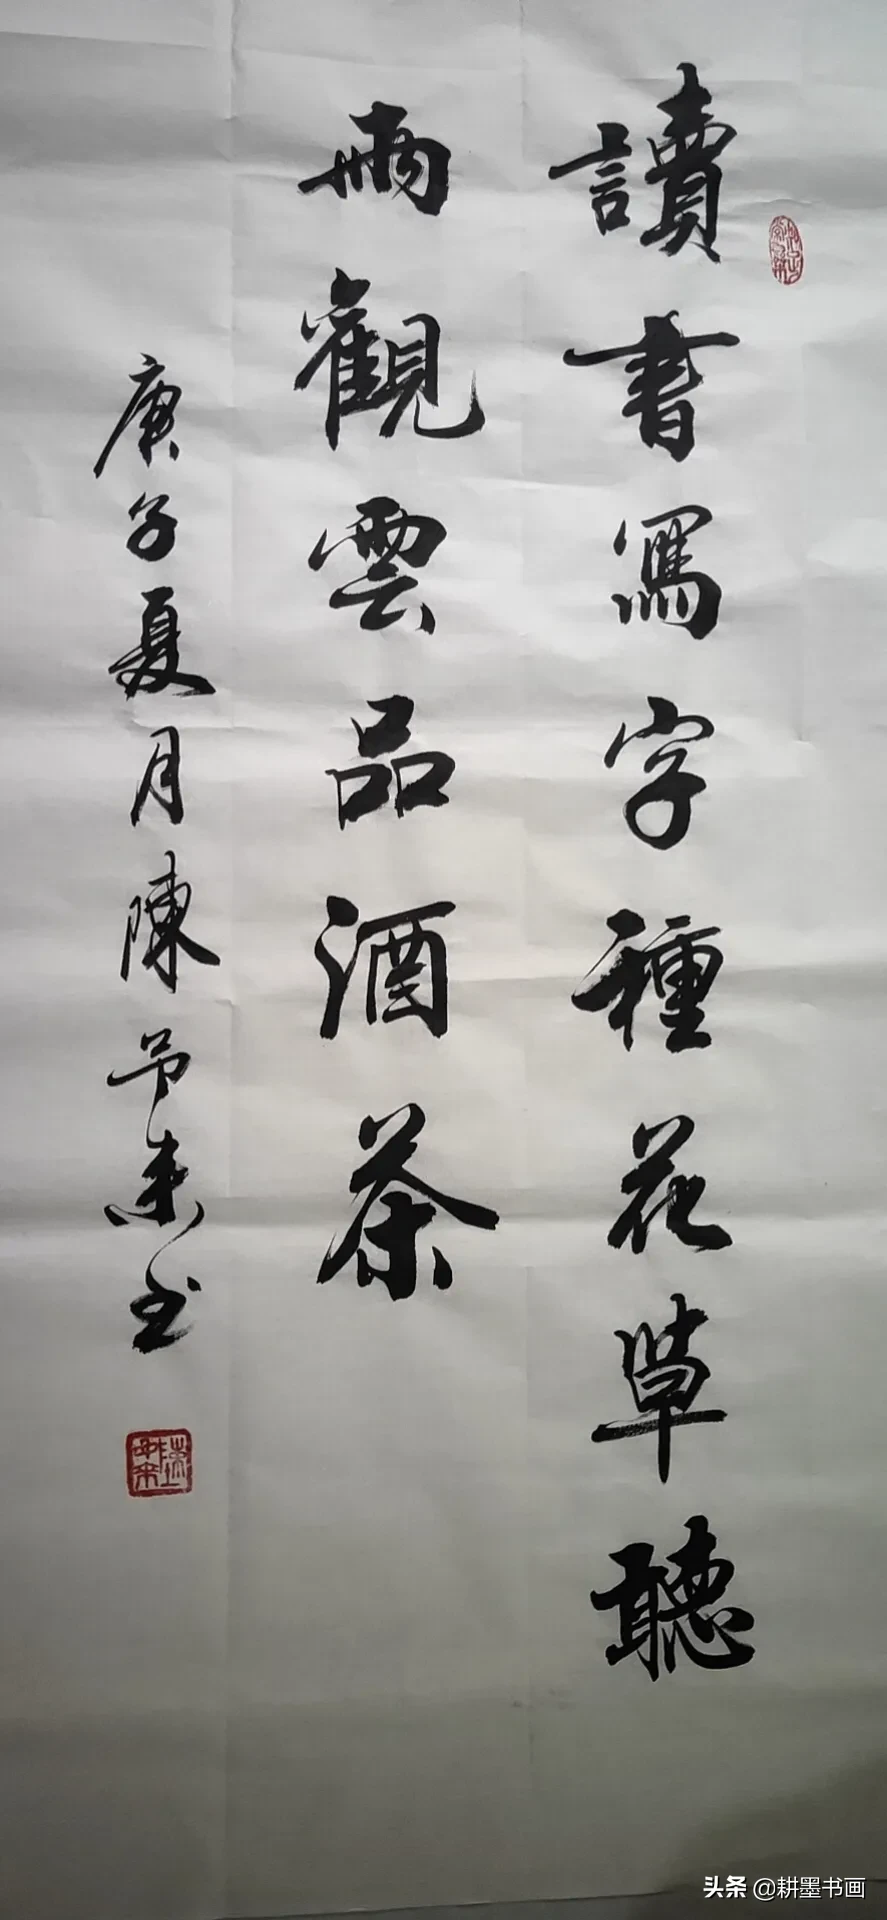 讀書寫字種花草聽
雨觀雲品酒茶
庚子夏月陳予来书
头条 @耕墨书画